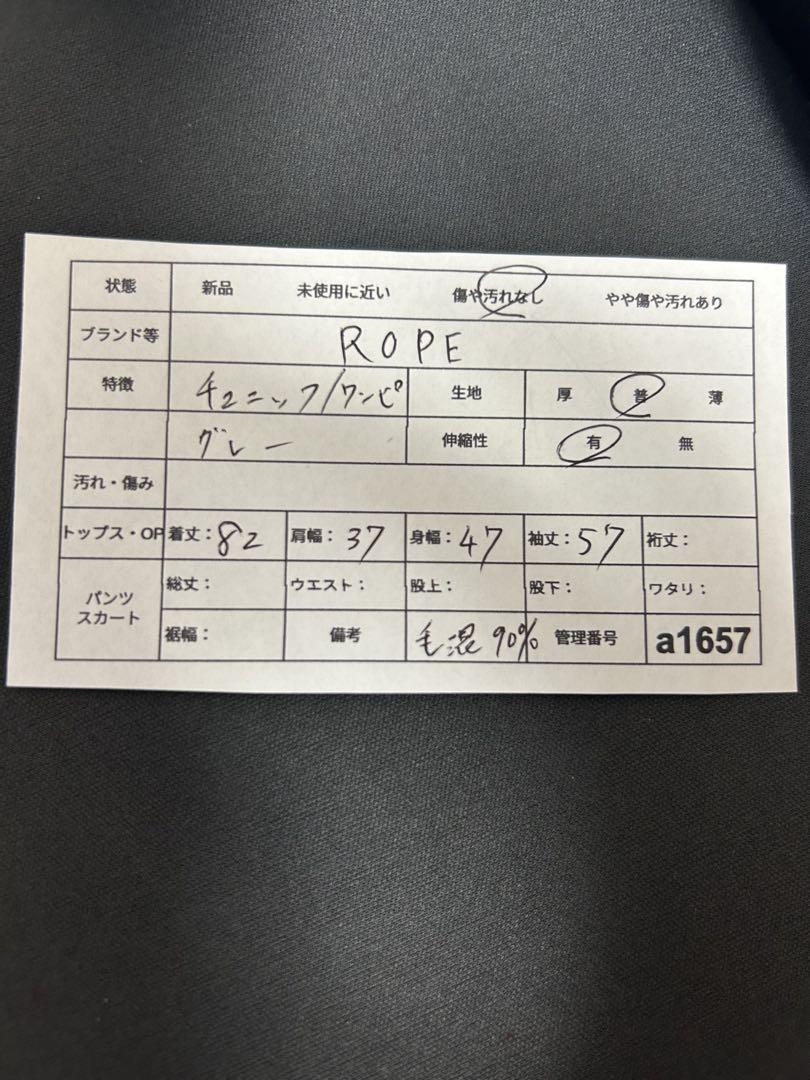 状態 新品 未使用に近い 傷や汚れなし やや傷や汚れあり
ブランド等 ROPE
特徴 チュニック/ワンピ 生地 厚 普 薄
グレー 伸縮性 有 無
汚れ・傷み
トップス・OP 着丈：82 肩幅：37 身幅：47 袖丈：57 裄丈：
パンツ スカート 総丈： ウエスト： 股上： 股下： ワタリ：
裾幅： 備考 毛混90% 管理番号 a1657